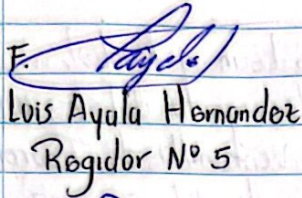 F.
Luis Ayala Hernandez
Regidor Nº 5